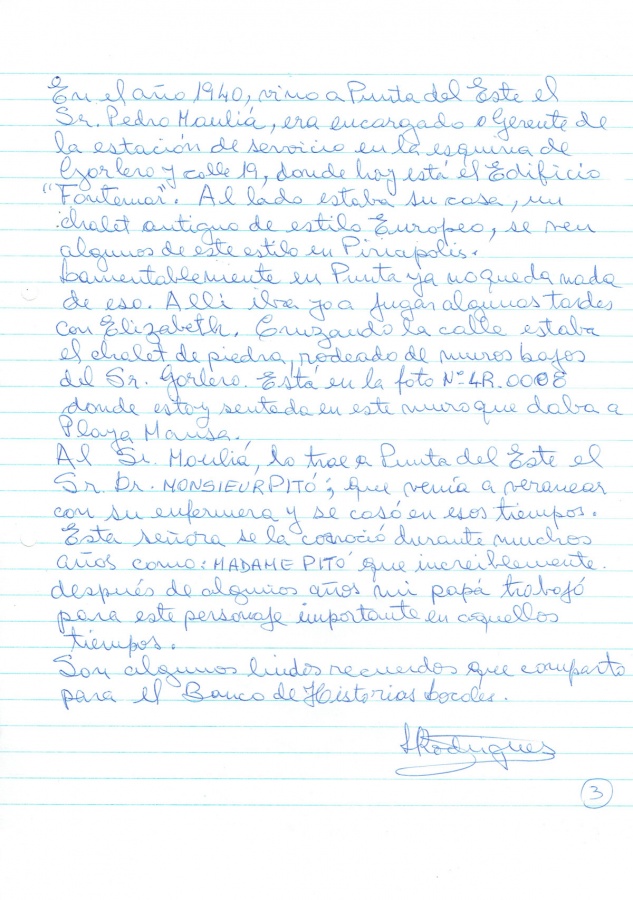 En el año 1940, vino a Punta del Este el
Sr. Pedro Mouliá, era encargado o Gerente de
la estación de servicio en la esquina de
Gorlero y calle 19, donde hoy está el Edificio
"Fontemar". Al lado estaba su casa, un
chalet antiguo de estilo Europeo, se ven
algunos de este estilo en Piriapolis.
Lamentablemente en Punta ya no queda nada
de eso. Alli iba yo a jugar algunas tardes
con Elizabeth. Cruzando la calle estaba
el chalet de piedra, rodeado de muros bajos
del Sr. Gorlero. Está en la foto Nº 4R.0008
donde estoy sentada en este muro que daba a
Playa Mansa.
Al Sr. Mouliá, lo trae a Punta del Este el
Sr. Dr. MONSIEUR PITÓ; que venía a veranear
con su enfermera y se casó en esos tiempos.
Esta señora se la conoció durante muchos
años como: MADAME PITÓ que increiblemente
después de algunos años mi papá trabajó
para este personaje importante en aquellos
tiempos.
Son algunos lindos recuerdos que comparto
para el Banco de Historias Locales.
SRodriguez
3